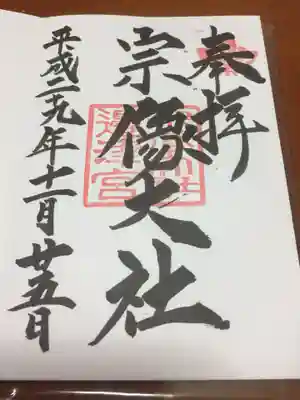 奉拝
宗像大社
平成二九年十一月廿五日
邊津宮